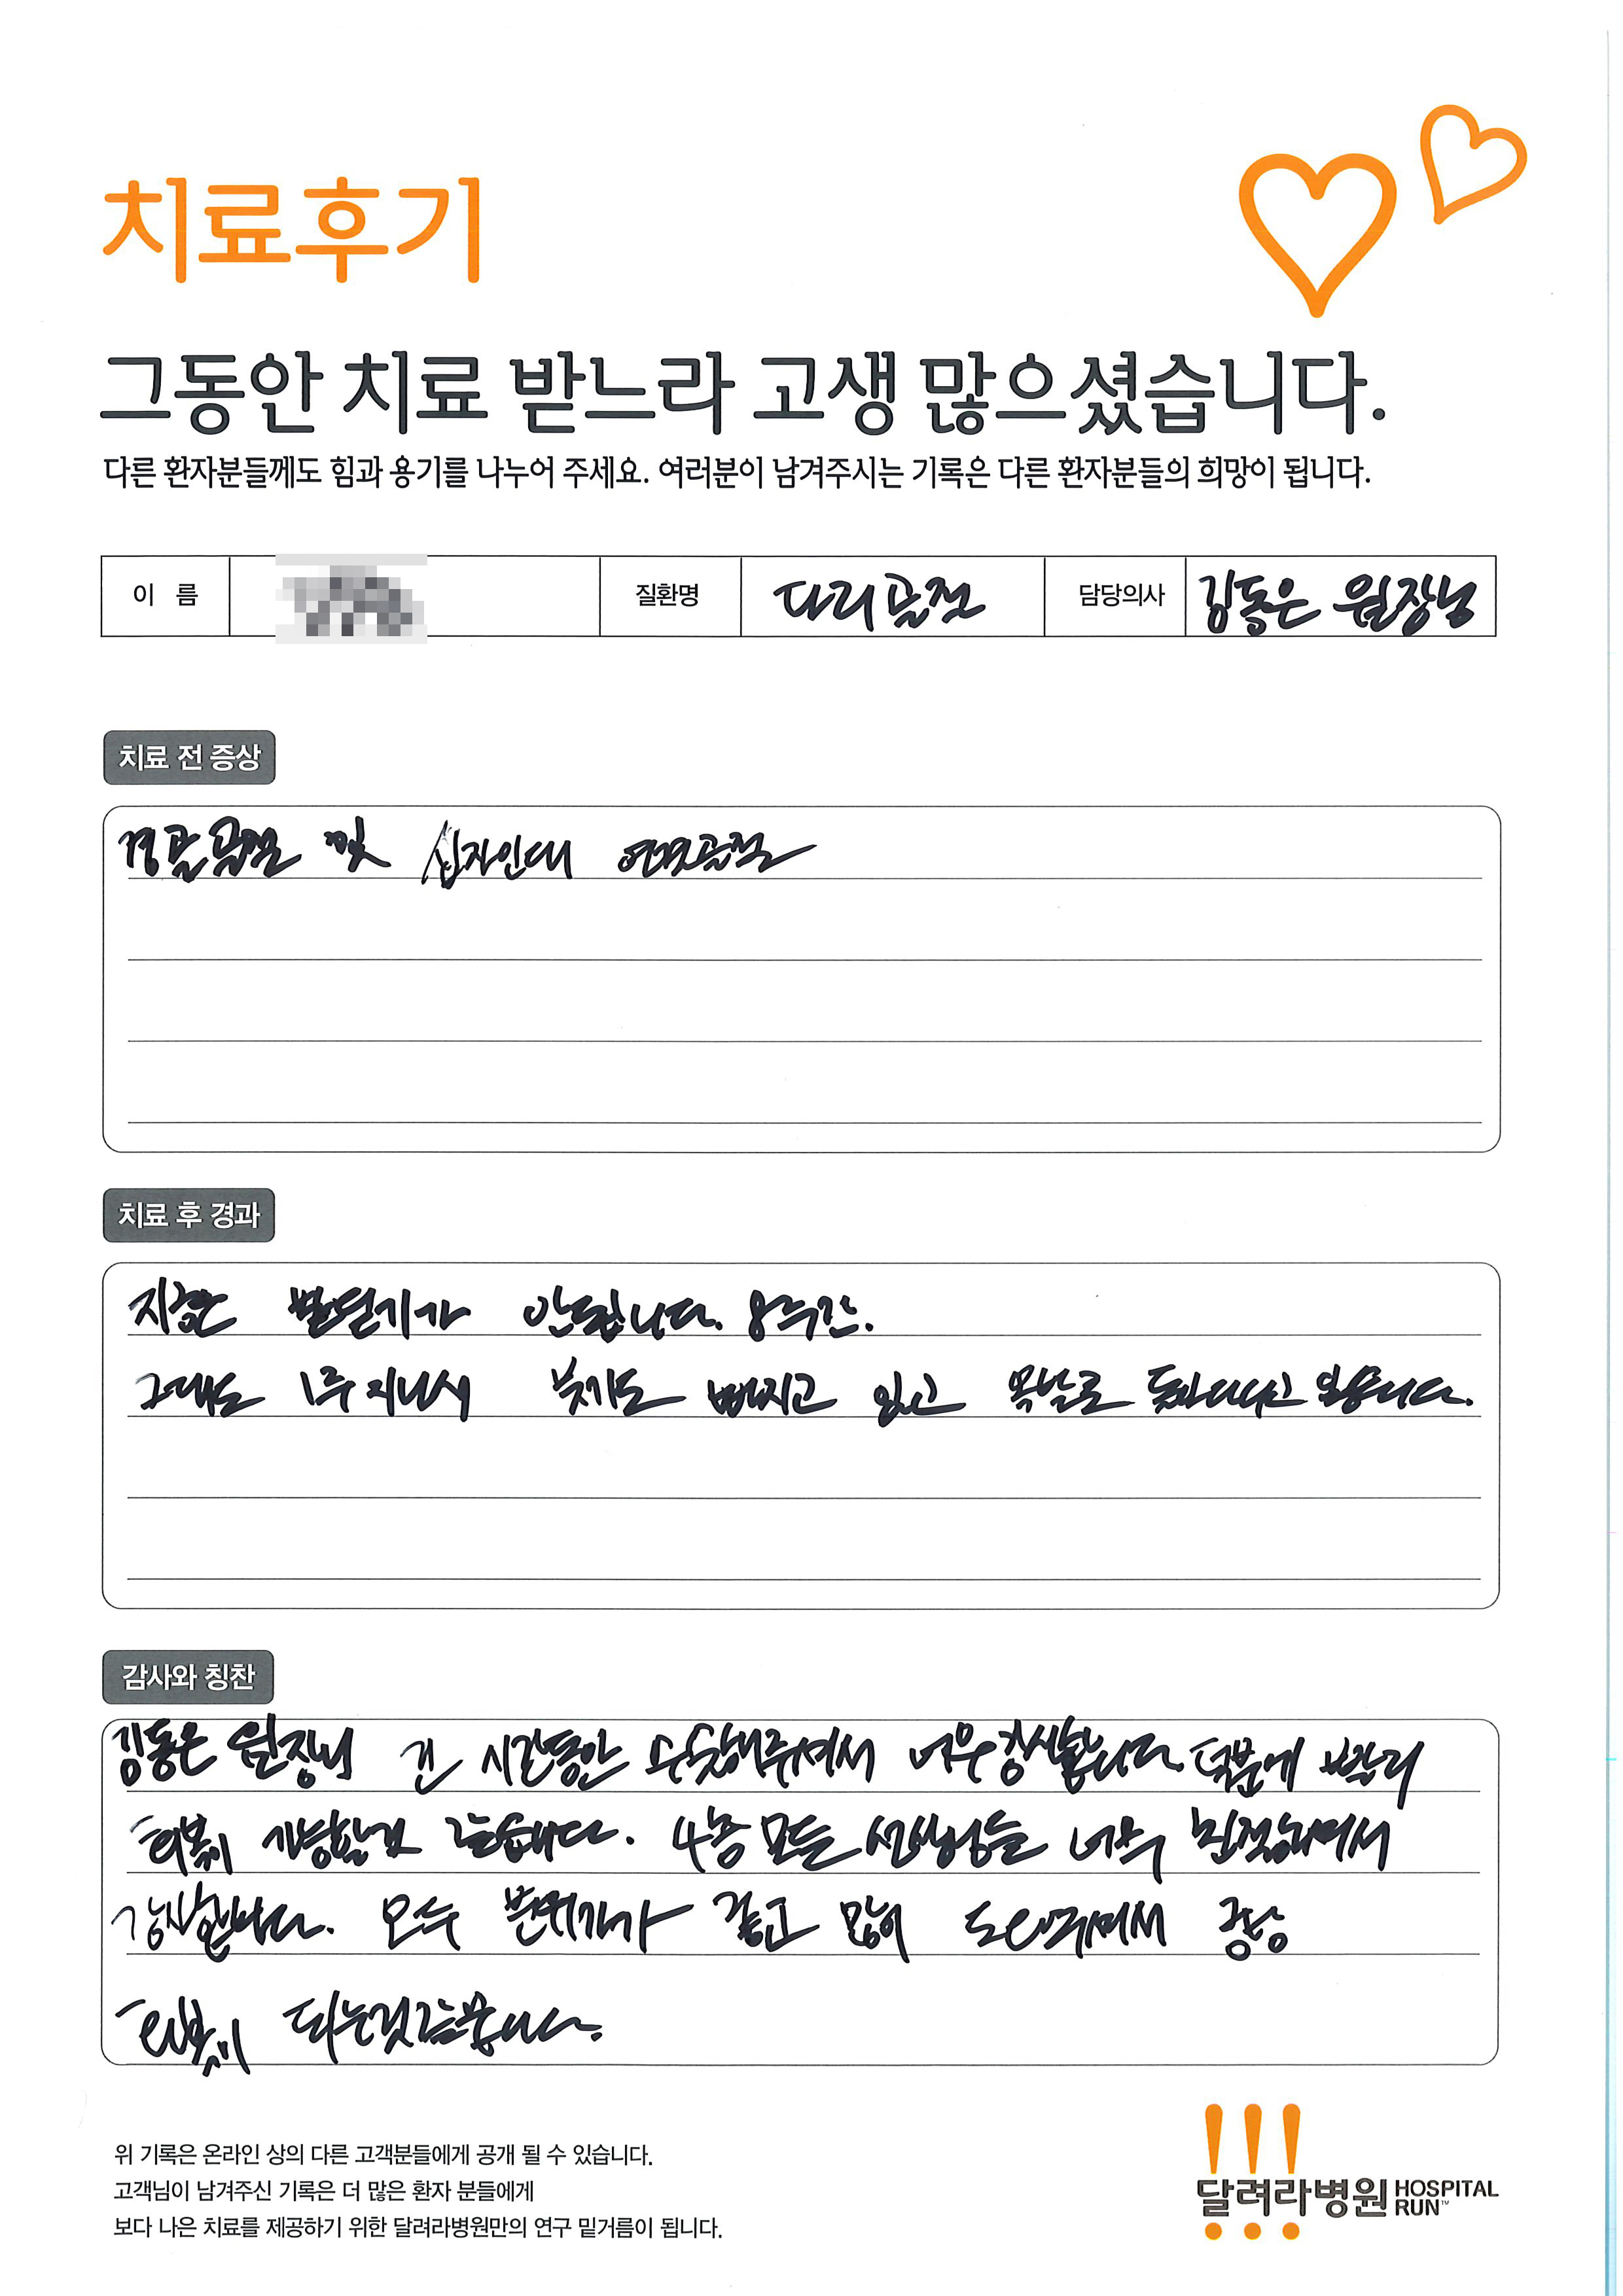 치료후기
그동안 치료 받느라 고생 많으셨습니다.
다른 환자분들께도 힘과 용기를 나누어 주세요. 여러분이 남겨주시는 기록은 다른 환자분들의 희망이 됩니다.
이 름 질환명 다리골절 담당의사 김동은 원장님
치료 전 증상
경골골절 및 십자인대
치료 후 경과
지금은 발딛기가 안됩니다. 8주간.
그래도 1주 지나서 붓기도 빠지고 있고 돌아다니고 있습니다.
감사와 칭찬
김동은 원장님 긴 시간동안 수술해주셔서 너무 감사합니다 덕분에 빨리
회복이 가능할것 같습니다. 4층 모든 선생님들 너무 친절하셔서
감사합니다. 모두 분위기가 좋고 많이 도와주셔서 금방
회복이 되는것같습니다.
위 기록은 온라인 상의 다른 고객분들에게 공개 될 수 있습니다.
고객님이 남겨주신 기록은 더 많은 환자 분들에게
보다 나은 치료를 제공하기 위한 달려라병원만의 연구 밑거름이 됩니다.
달려라병원 HOSPITAL RUN™